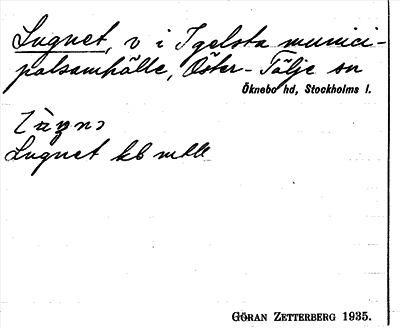 Lugnet, v i Igelsta munici-
palsamhälle, Öster-Tälje sn
Öknebo hd, Stockholms l.
Lugnet kb
GÖRAN ZETTERBERG 1935.